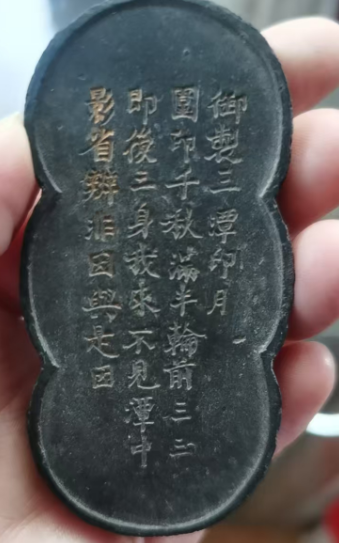 御製三潭印月
圓印千秋滿半輪前三二
即後三身我來不見潭中
影省辨非因與是因